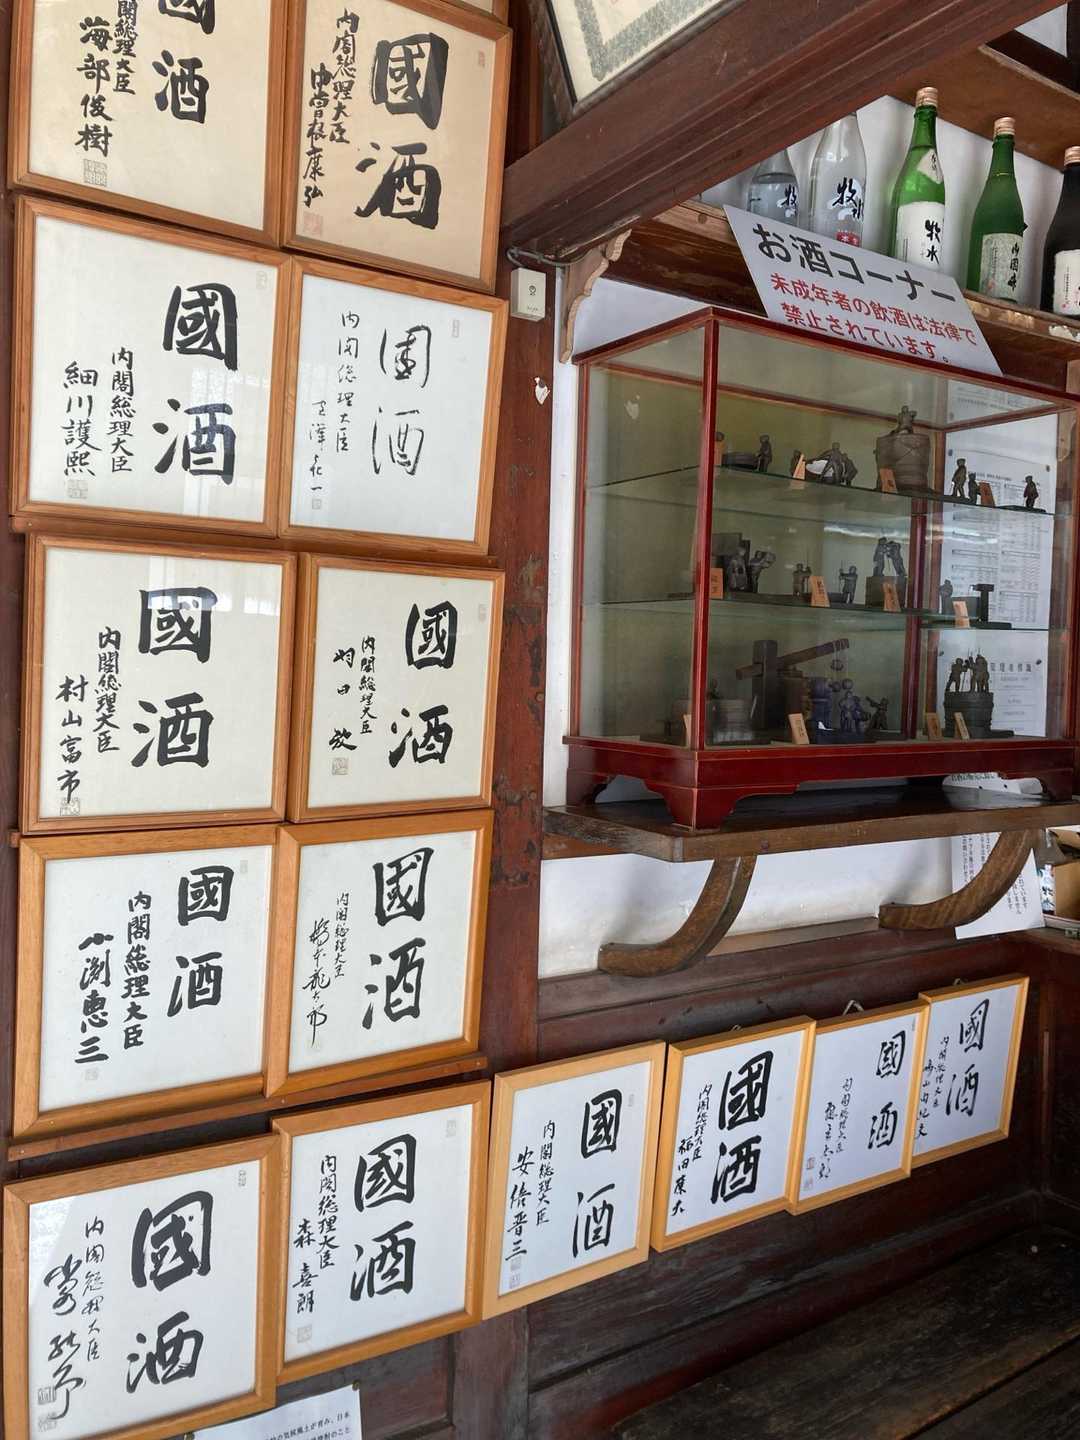 國酒
内閣総理大臣
海部俊樹
國酒
内閣総理大臣
中曽根康弘
國酒
内閣総理大臣
細川護熙
国酒
内閣総理大臣
宮澤喜一
國酒
内閣総理大臣
村山富市
國酒
内閣総理大臣
羽田孜
國酒
内閣総理大臣
小渕恵三
國酒
内閣総理大臣
橋本龍太郎
國酒
内閣総理大臣
國酒
内閣総理大臣
森喜朗
國酒
内閣総理大臣
安倍晋三
國酒
内閣総理大臣
福田康夫
國酒
内閣総理大臣
麻生太郎
國酒
内閣総理大臣
鳩山由紀夫
お酒コーナー
未成年者の飲酒は法律で
禁止されています。
牧水
牧水
牧水
の気候風土が育み、日本